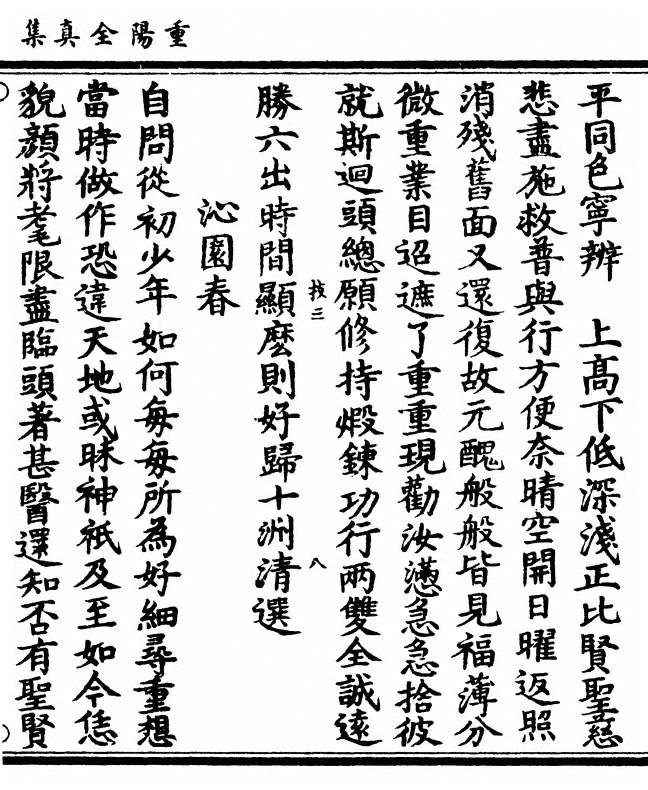 重陽全真集
平同色寧辨　上高下低深淺正比賢聖慈
悲盡施救普與行方便奈晴空開日曜返照
消殘舊面又還復故元醜般般皆見福薄分
微重業目迢遮了重重現勸汝懑急急捨彼
就斯迴頭總願修持煅鍊功行兩雙全誠遠
勝六出時間顯麼則好歸十洲清選
枝三
八
沁園春
自問從初少年如何每每所為好細尋重想
當時做作恐違天地或昧神祇及至如今恁
貌顏將耄限盡臨頭著甚醫還知否有聖賢